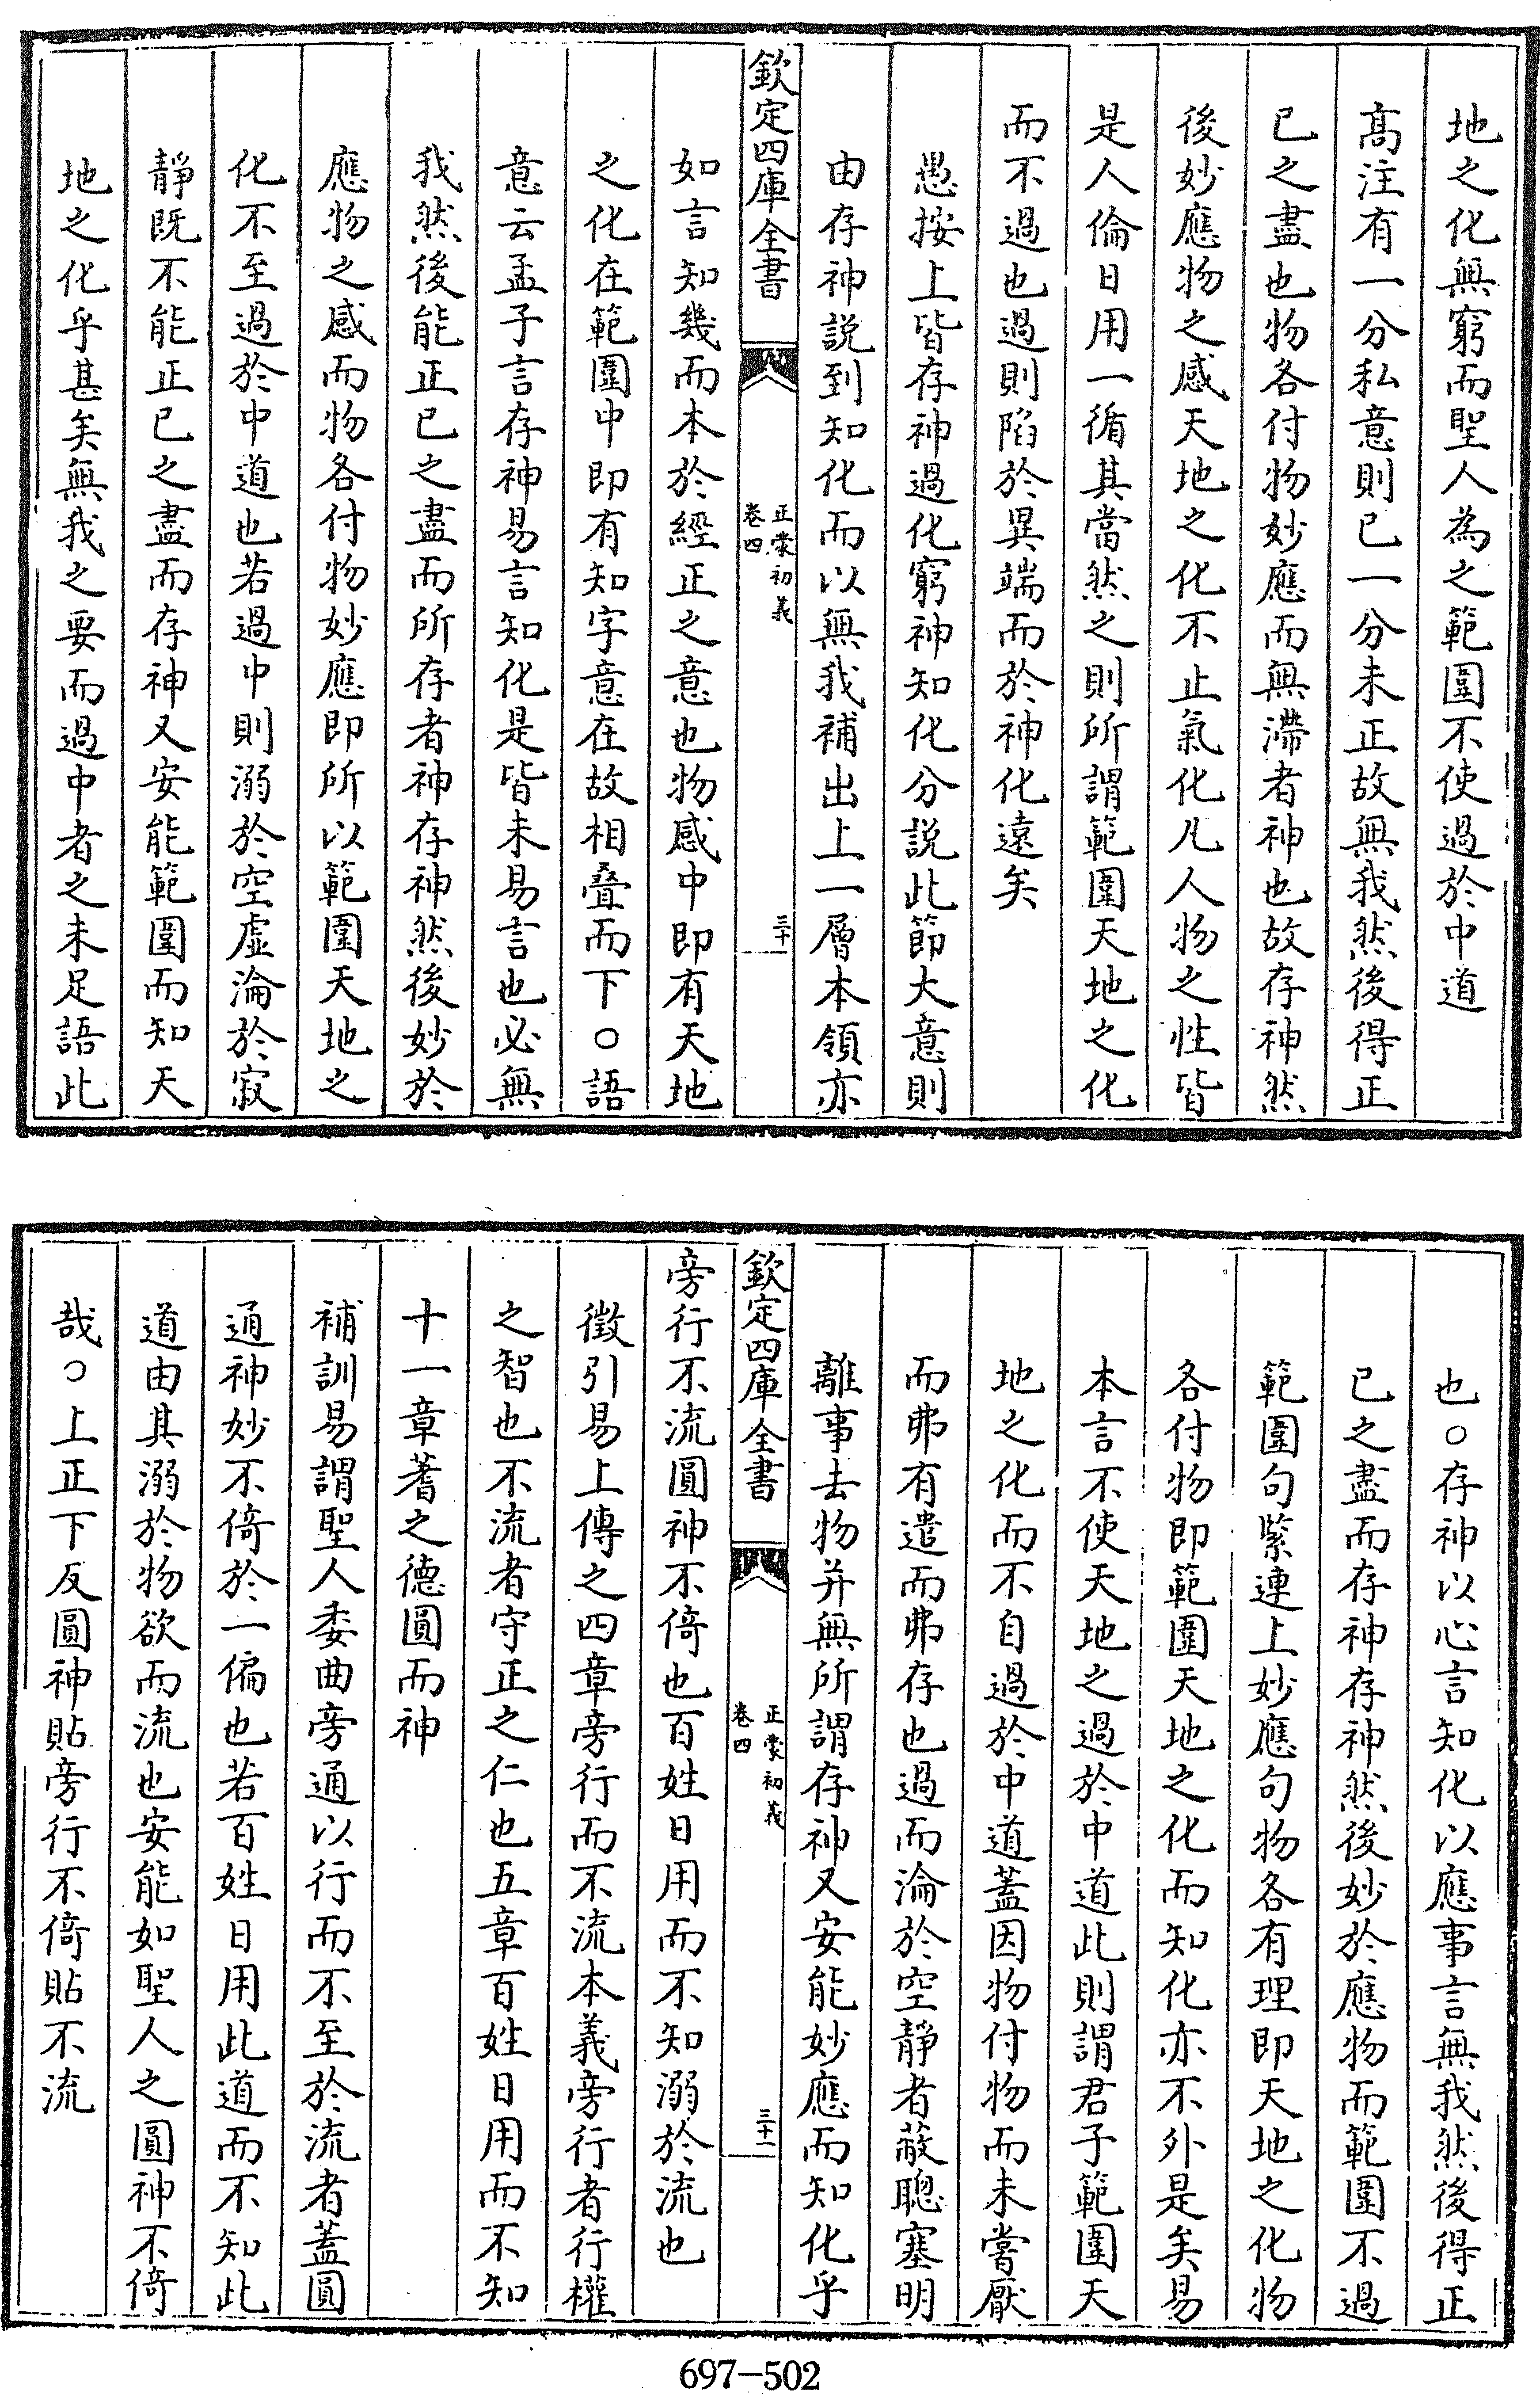 地之化無窮而聖人為之範圍不使過於中道
髙注有一分私意則已一分未正故無我然後得正
已之盡也物各付物妙應而無滯者神也故存神然
後妙應物之感天地之化不止氣化凡人物之性皆
是人倫日用一循其當然之則所謂範圍天地之化
而不過也過則陷於異端而於神化遠矣
愚按上皆存神過化窮神知化分説此節大意則
由存神説到知化而以無我補出上一層本領亦
欽定四庫全書
正蒙初義
卷四
三十
如言知幾而本於經正之意也物感中即有天地
之化在範圍中即有知字意在故相叠而下○語
意云孟子言存神易言知化是皆未易言也必無
我然後能正已之盡而所存者神存神然後妙於
應物之感而物各付物妙應即所以範圍天地之
化不至過於中道也若過中則溺於空虛淪於寂
靜既不能正已之盡而存神又安能範圍而知天
地之化乎甚矣無我之要而過中者之未足語此
也○存神以心言知化以應事言無我然後得正
已之盡而存神存神然後妙於應物而範圍不過
範圍句緊連上妙應句物各有理即天地之化物
各付物即範圍天地之化而知化亦不外是矣易
本言不使天地之過於中道此則謂君子範圍天
地之化而不自過於中道蓋因物付物而未嘗厭
而弗有遣而弗存也過而淪於空靜者蔽聰塞明
離事去物并無所謂存神又安能妙應而知化乎
欽定四庫全書
正蒙初義
卷四
三十一
旁行不流圓神不倚也百姓日用而不知溺於流也
徵引易上傳之四章旁行而不流本義旁行者行權
之智也不流者守正之仁也五章百姓日用而不知
十一章蓍之德圓而神
補訓易謂聖人委曲旁通以行而不至於流者蓋圓
通神妙不倚於一偏也若百姓日用此道而不知此
道由其溺於物欲而流也安能如聖人之圓神不倚
哉○上正下反圓神貼旁行不倚貼不流
697-502